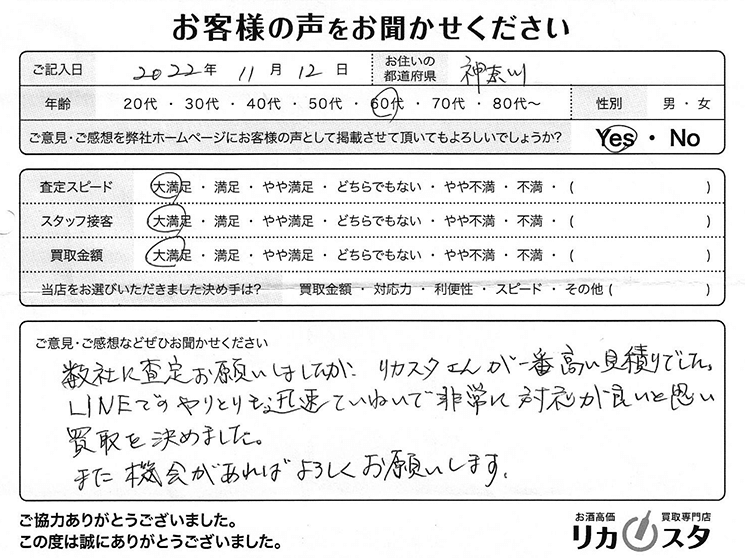 お客様の声をお聞かせください
ご記入日 2022年 11月 12日 お住いの都道府県 神奈川
年齢 20代 ・ 30代 ・ 40代 ・ 50代 ・ 60代 ・ 70代 ・ 80代〜 性別 男 ・ 女
ご意見・ご感想を弊社ホームページにお客様の声として掲載させて頂いてもよろしいでしょうか? Yes ・ No
査定スピード 大満足 ・ 満足 ・ やや満足 ・ どちらでもない ・ やや不満 ・ 不満 ・ ( )
スタッフ接客 大満足 ・ 満足 ・ やや満足 ・ どちらでもない ・ やや不満 ・ 不満 ・ ( )
買取金額 大満足 ・ 満足 ・ やや満足 ・ どちらでもない ・ やや不満 ・ 不満 ・ ( )
当店をお選びいただきました決め手は? 買取金額 ・ 対応力 ・ 利便性 ・ スピード ・ その他 ( )
ご意見・ご感想などぜひお聞かせください
数社に査定お願いしましたが、リカスタさんが一番高い見積りでした。
LINEでのやりとりも迅速ていねいで非常に対応が良いと思い
買取を決めました。
また機会があればよろしくお願いします。
ご協力ありがとうございました。
この度は誠にありがとうございました。
お酒高価 買取専門店
リカスタ